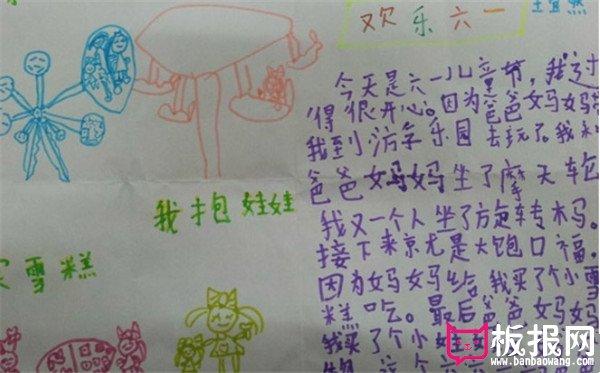 欢乐六一
今天是六一儿童节，我过
得很开心。因为爸爸妈妈带
我到游乐园去玩了。我和
爸爸妈妈坐了摩天车包
我又一个人坐了旋转木马。
接下来京尤是大饱口福，
因为妈妈给我买了个小雪
糕吃。最后爸爸妈妈
我买了个小娃
我抱娃娃
雪糕
板报网
www.banbaowang.com